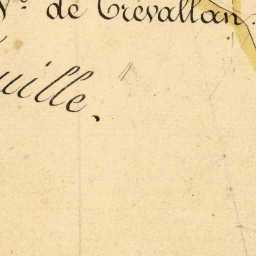 de Trévallan.
uille.